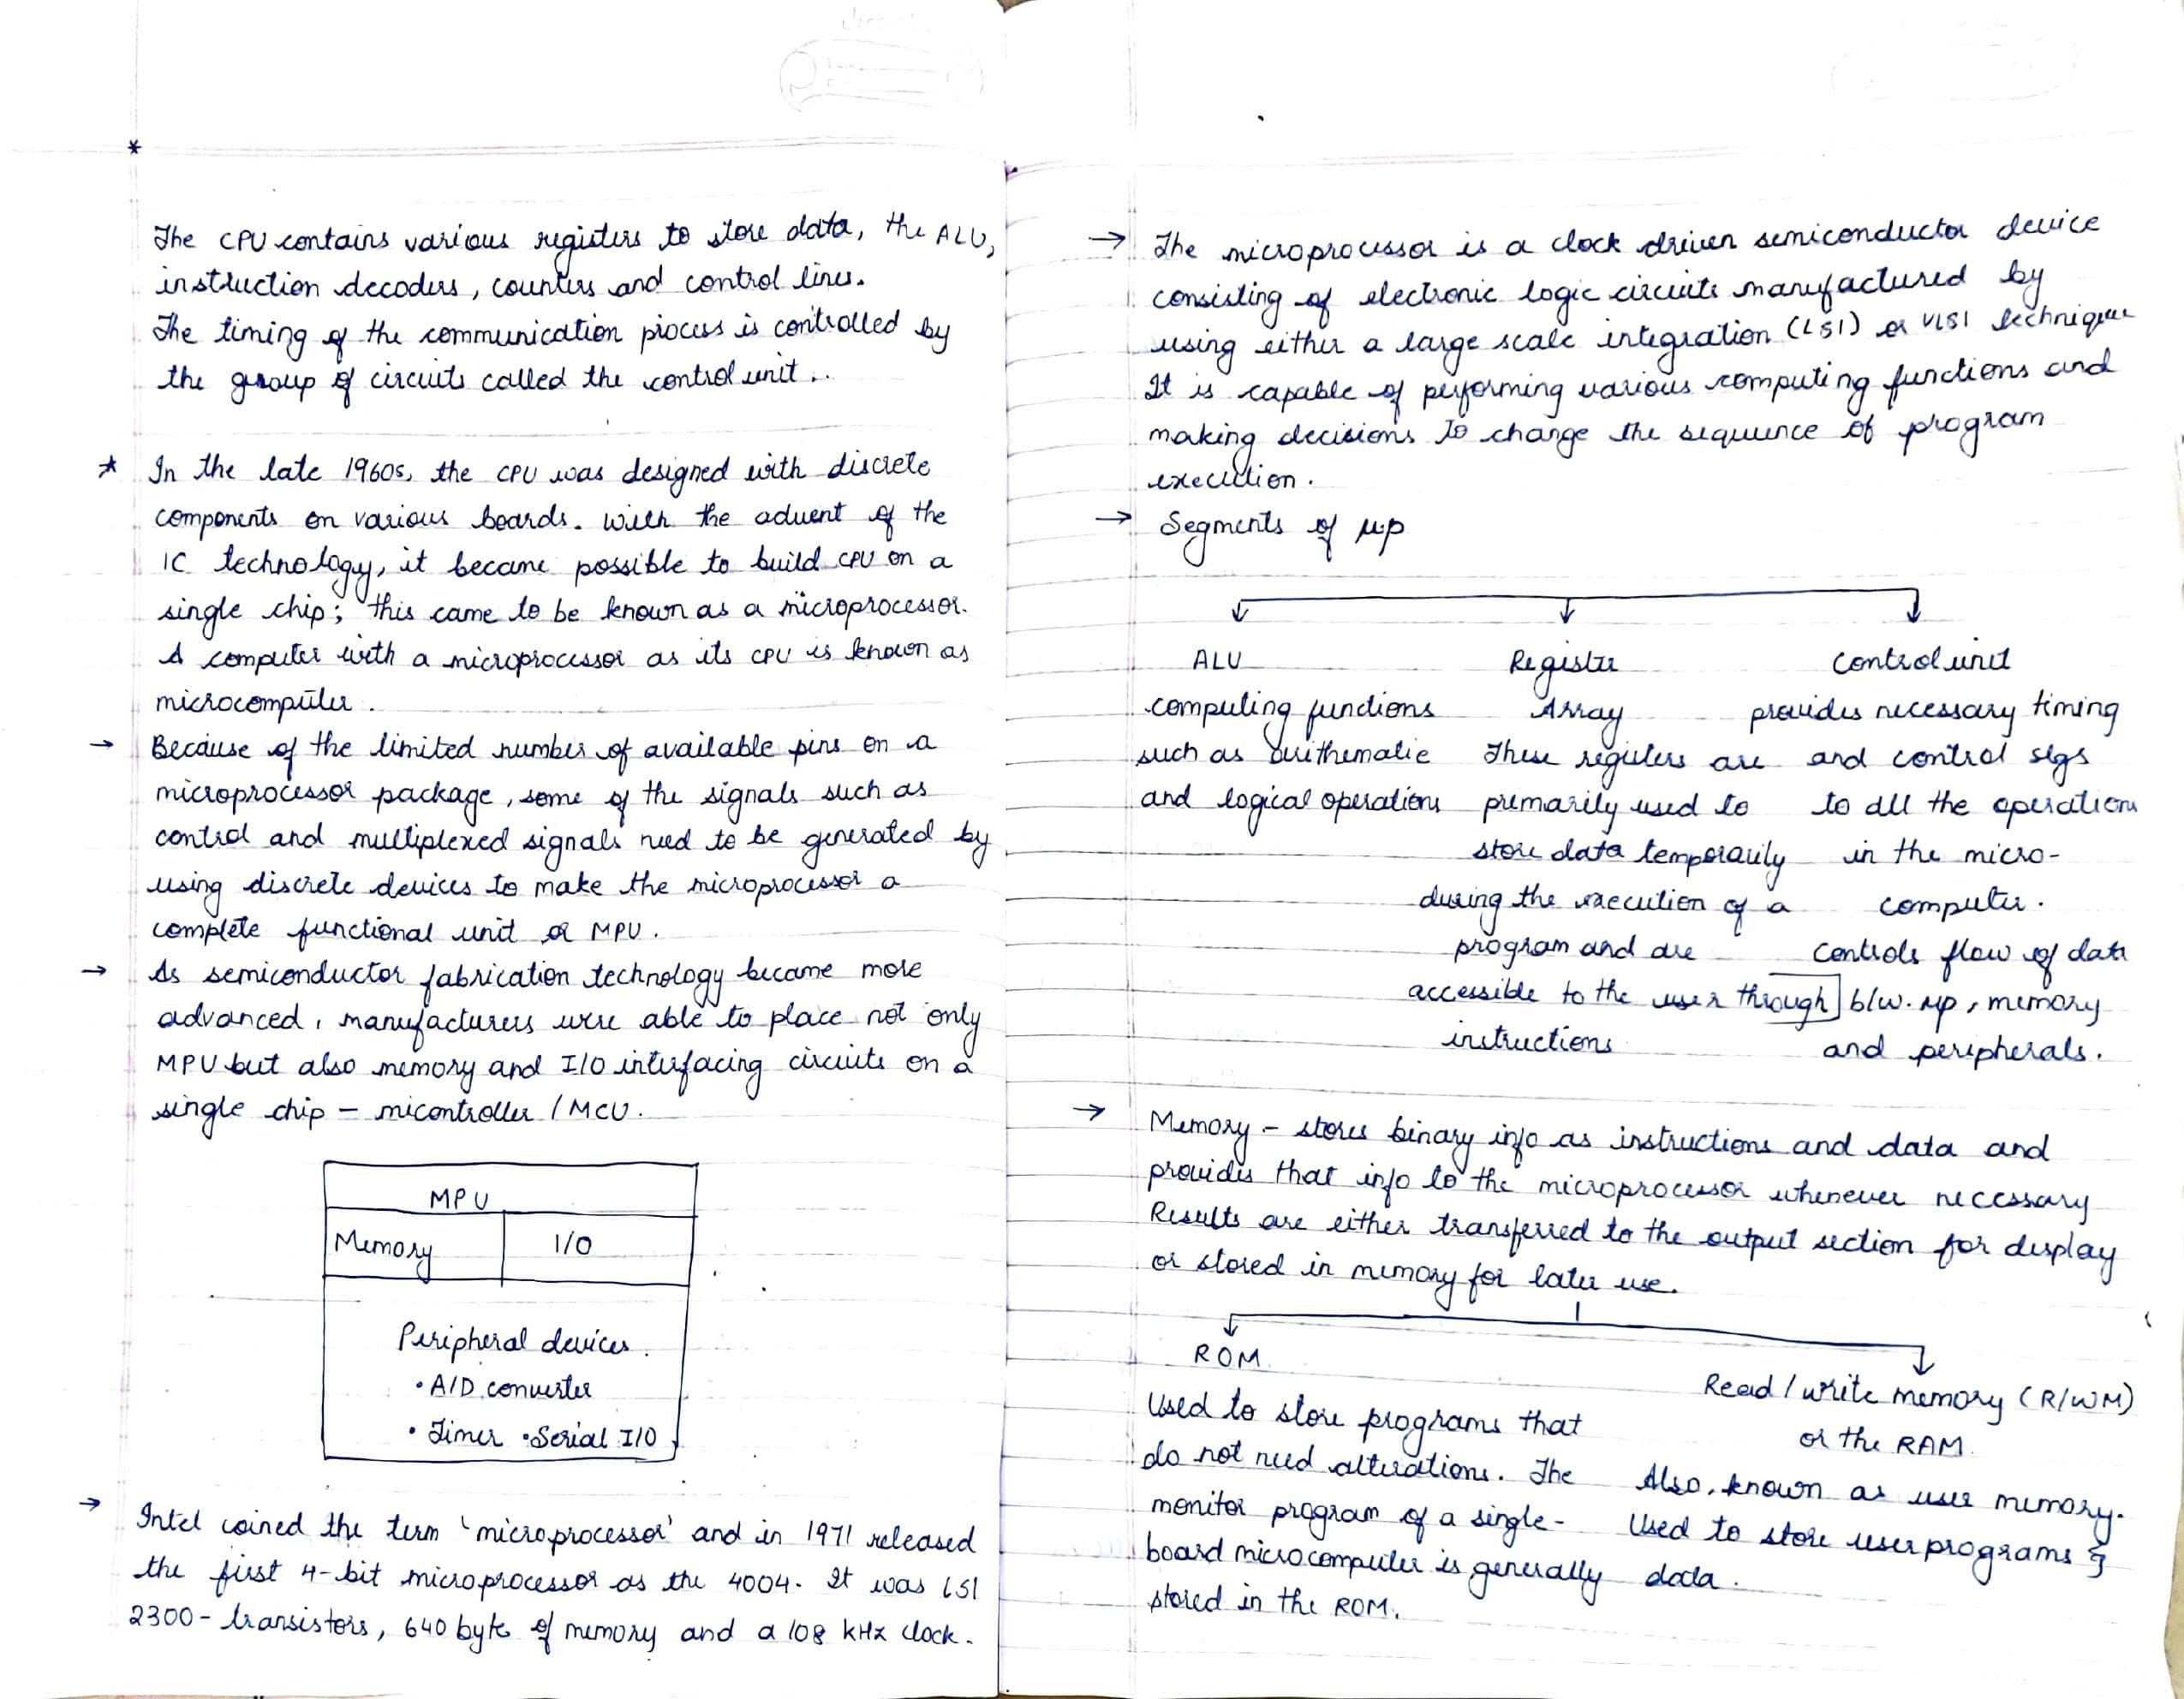 *
The CPU contains various registers to store data, the ALU,
instruction decoders, counters and control lines.
The timing of the communication process is controlled by
the group of circuits called the control unit..
* In the late 1960s, the CPU was designed with discrete
components on various boards. With the advent of the
IC technology, it became possible to build CPU on a
single chip; this came to be known as a microprocessor.
A computer with a microprocessor as its CPU is known as
microcomputer.
→ Because of the limited number of available pins on a
microprocessor package, some of the signals such as
control and multiplexed signals need to be generated by
using discrete devices to make the microprocessor a
complete functional unit or MPU.
→ As semiconductor fabrication technology became more
advanced, manufacturers were able to place not only
MPU but also memory and I/O interfacing circuits on a
single chip - micontroller / MCU.
MPU
Memory I/O
Peripheral devices.
• A/D converter
• Timer • Serial I/O
→ Intel coined the term 'microprocessor' and in 1971 released
the first 4-bit microprocessor as the 4004. It was LSI
2300 - transistors, 640 byte of memory and a 108 kHz clock.
→ The microprocessor is a clock driven semiconductor device
consisting of electronic logic circuits manufactured by
using either a large scale integration (LSI) or VLSI technique
It is capable of performing various computing functions and
making decisions to change the sequence of program
execution.
→ Segments of μp
ALU Register control unit
computing functions Array provides necessary timing
such as arithematic These registers are and control sigs
and logical operations primarily used to to all the operations
store data temporarily in the micro-
during the execution of a computer.
program and are controls flow of data
accessible to the user through b/w. μp, memory
instructions and peripherals.
→ Memory - stores binary info as instructions and data and
provides that info to the microprocessor whenever necessary
Results are either transferred to the output section for display
or stored in memory for later use.
ROM Read / write memory (R/WM)
Used to store programs that or the RAM.
do not need alterations. The Also, known as user memory.
monitor program of a single- Used to store user programs &
board microcomputer is generally data.
stored in the ROM.